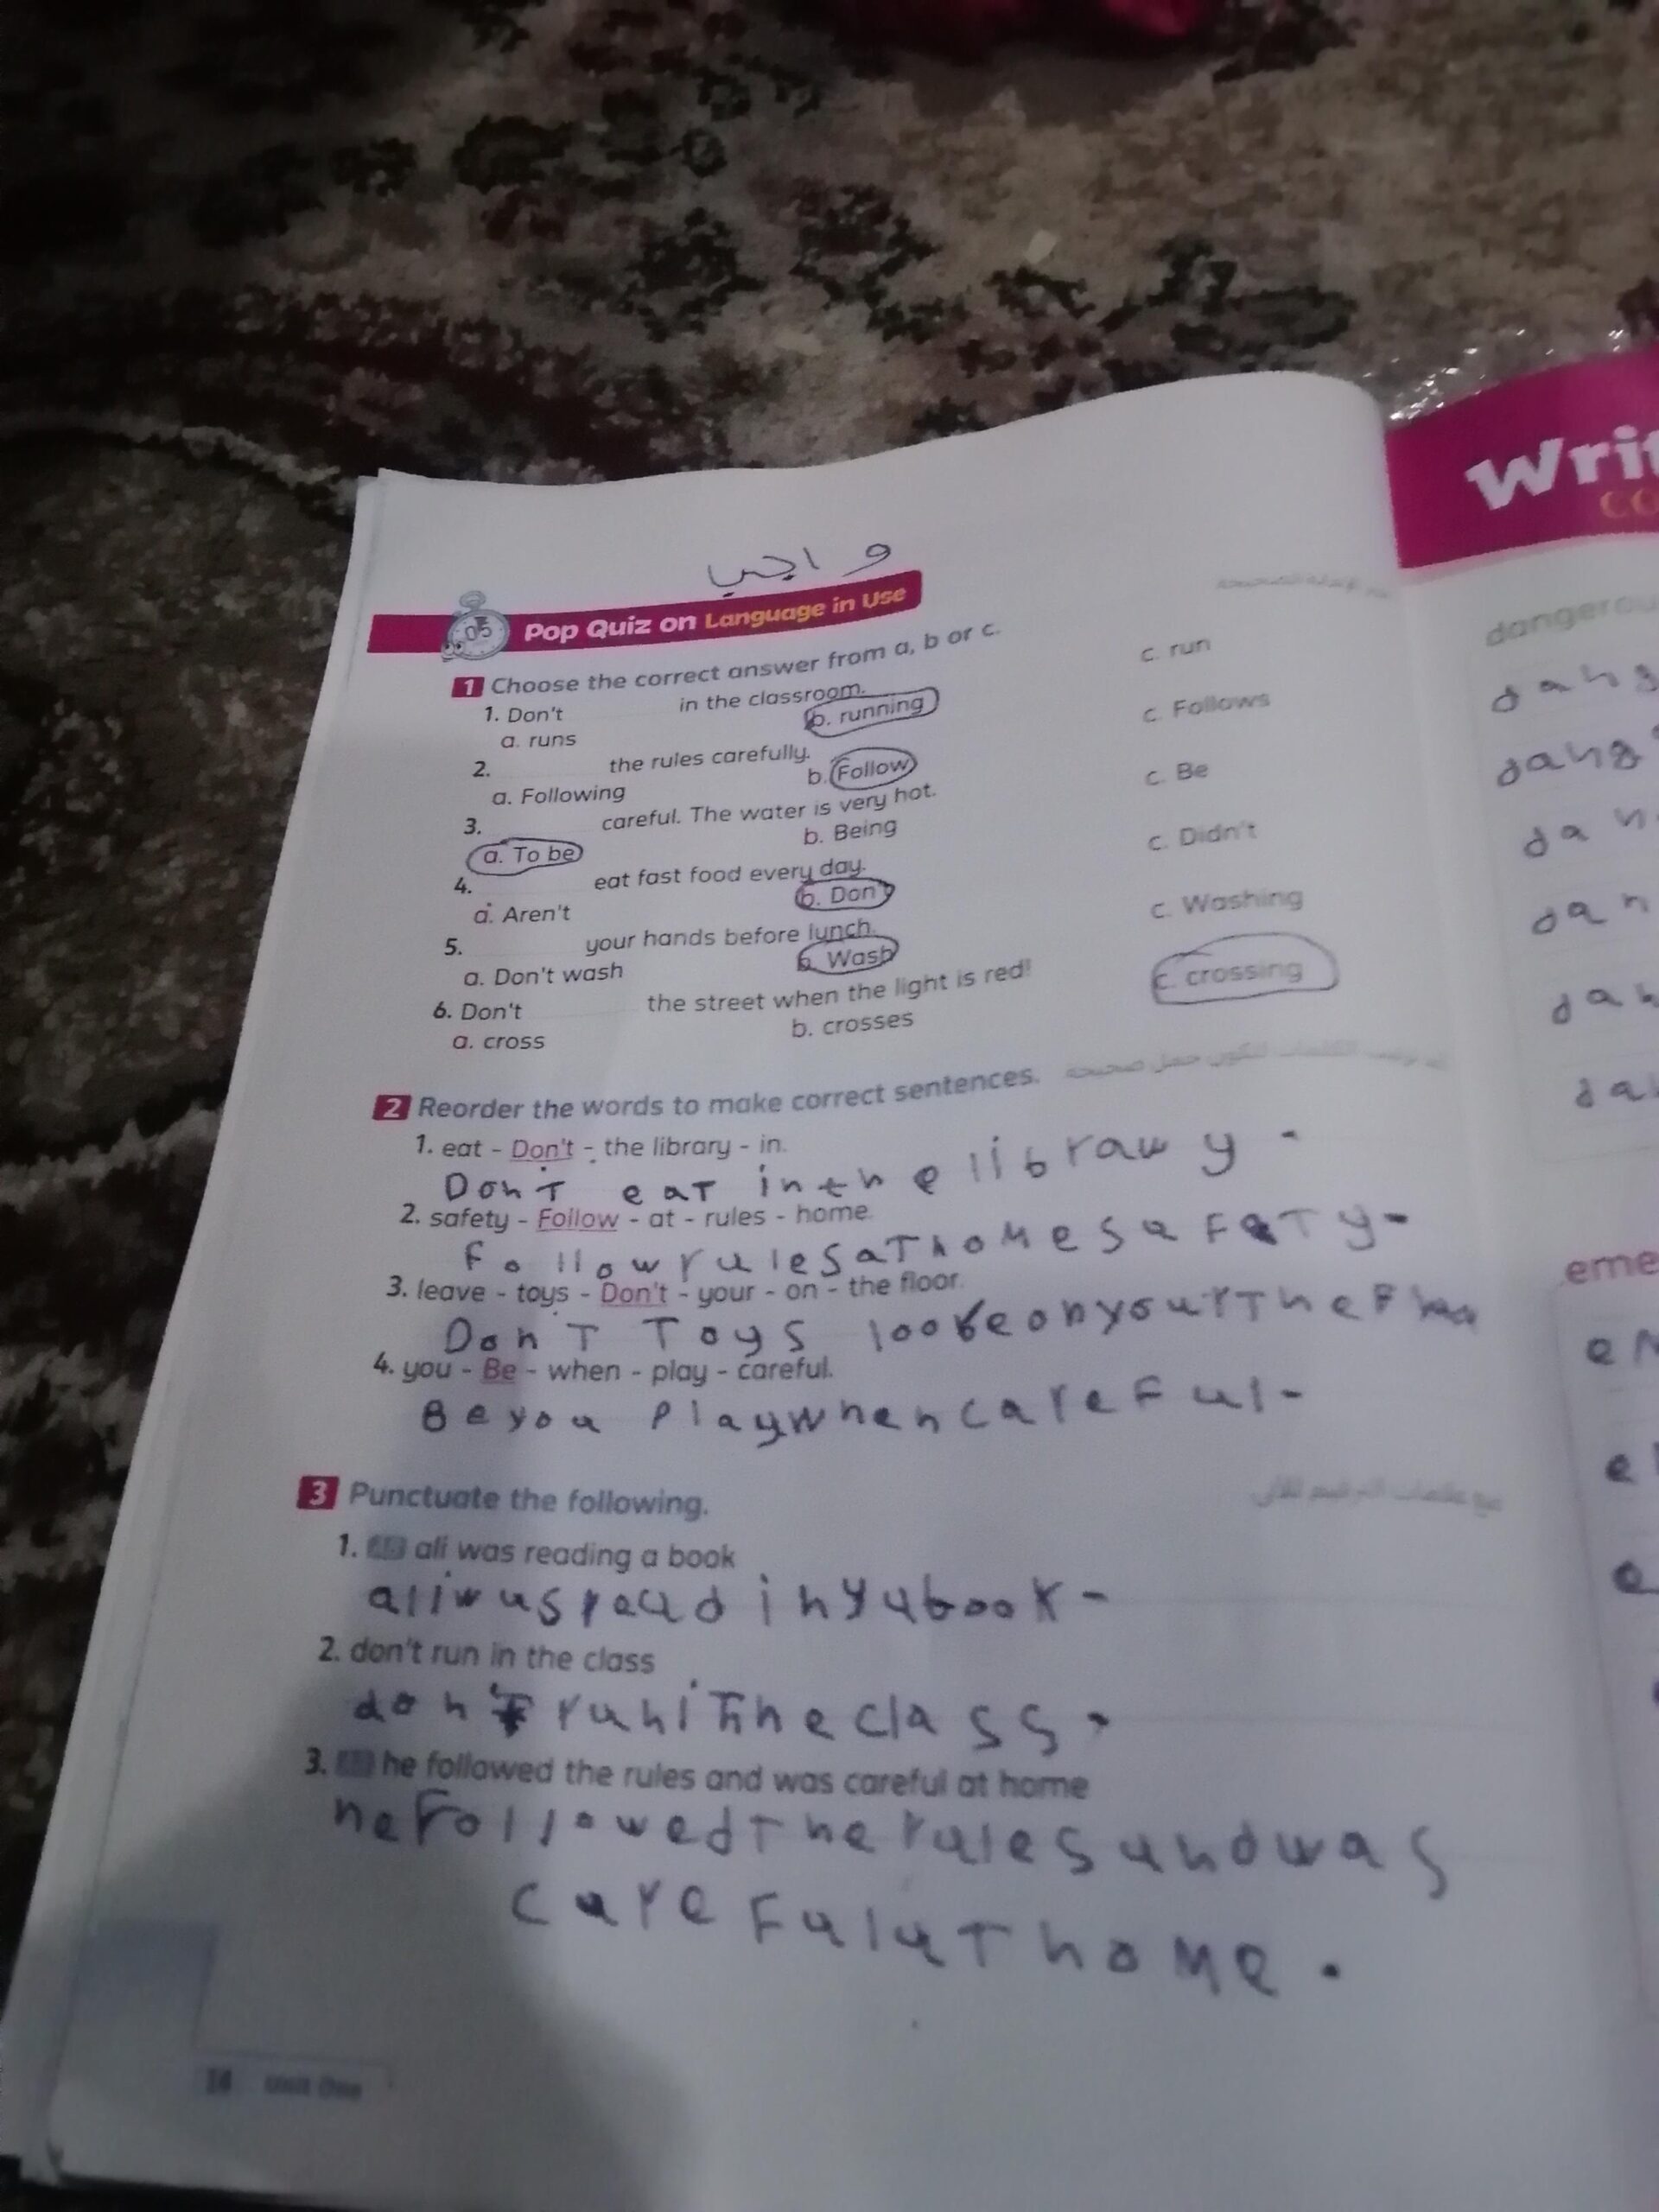 واجب
05
Pop Quiz on Language in Use
1 Choose the correct answer from a, b or c.
1. Don't in the classroom.
a. runs b. running c. run
2. the rules carefully.
a. Following b. Follow c. Follows
3. careful. The water is very hot.
a. To be b. Being c. Be
4. eat fast food every day.
a. Aren't b. Don't c. Didn't
5. your hands before lunch.
a. Don't wash b. Wash c. Washing
6. Don't the street when the light is red!
a. cross b. crosses c. crossing
2 Reorder the words to make correct sentences.
1. eat - Don't - the library - in.
Don't eat in the library
2. safety - Follow - at - rules - home.
Follow rules at home safaty
3. leave - toys - Don't - your - on - the floor.
Don't Toys on your The
4. you - Be - when - play - careful.
Be you Play when careful
3 Punctuate the following.
1. ali was reading a book
ali was reading a book
2. don't run in the class
don't run the class
3. he followed the rules and was careful at home
he Followed The rules and was
careful at home.
14 Unit One
Wri
dangerou
dang
dang
dan
dan
dan
da
eme